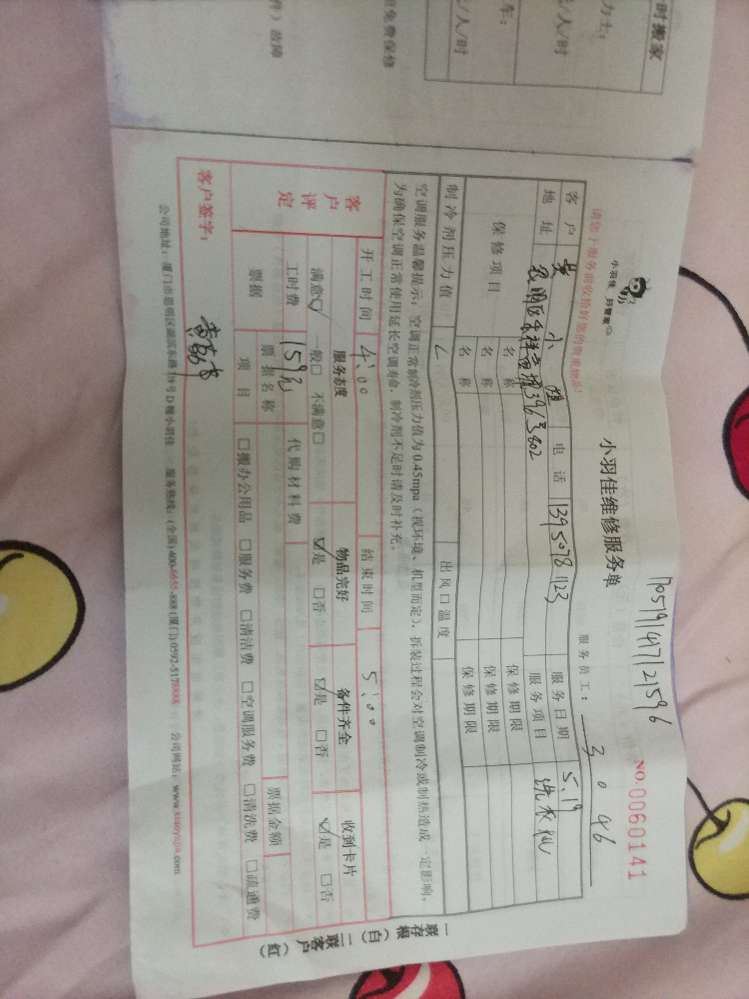 时搬家
力士：
元/人/时
车：
元/人/时
免费保修
件）故障
小羽佳 邦管家
请您于服务前收拾好您的贵重物品！
170519141712159 6
小羽佳维修服务单
NO.0060141
服务员工： 3046
客户 黄小姐 电话 13950781123 服务日期 5.19
地址 3963802 服务项目 洗衣机
保修项目 名称 保修期限
名称 保修期限
名称 保修期限
制冷剂压力值 出风口温度
空调服务温馨提示：空调正常制冷剂压力值为0.45mpa（视环境、机型而定），拆装过程会对空调制冷或制热造成一定影响，
为确保空调正常使用延长空调寿命，制冷剂不足时请及时补充。
开工时间 4:00 结束时间 5:00
客户评定 服务态度 物品完好 备件齐全 收到卡片
满意☑ 一般□ 不满意□ ☑是 □否 ☑是 □否 ☑是 □否
工时费 159元 代购材料费
票据 票据名称 票据金额
项目 □搬办公用品 □服务费 □清洁费 □空调服务费 □清洗费 □疏通费
客户签字：
公司地址：厦门市思明区 号D幢小羽佳 服务热线：(全国)400-6655-888 (厦门)0592-5178888 公司网站：www.xiaoyujia.com
一联存根（白） 二联客户（红）